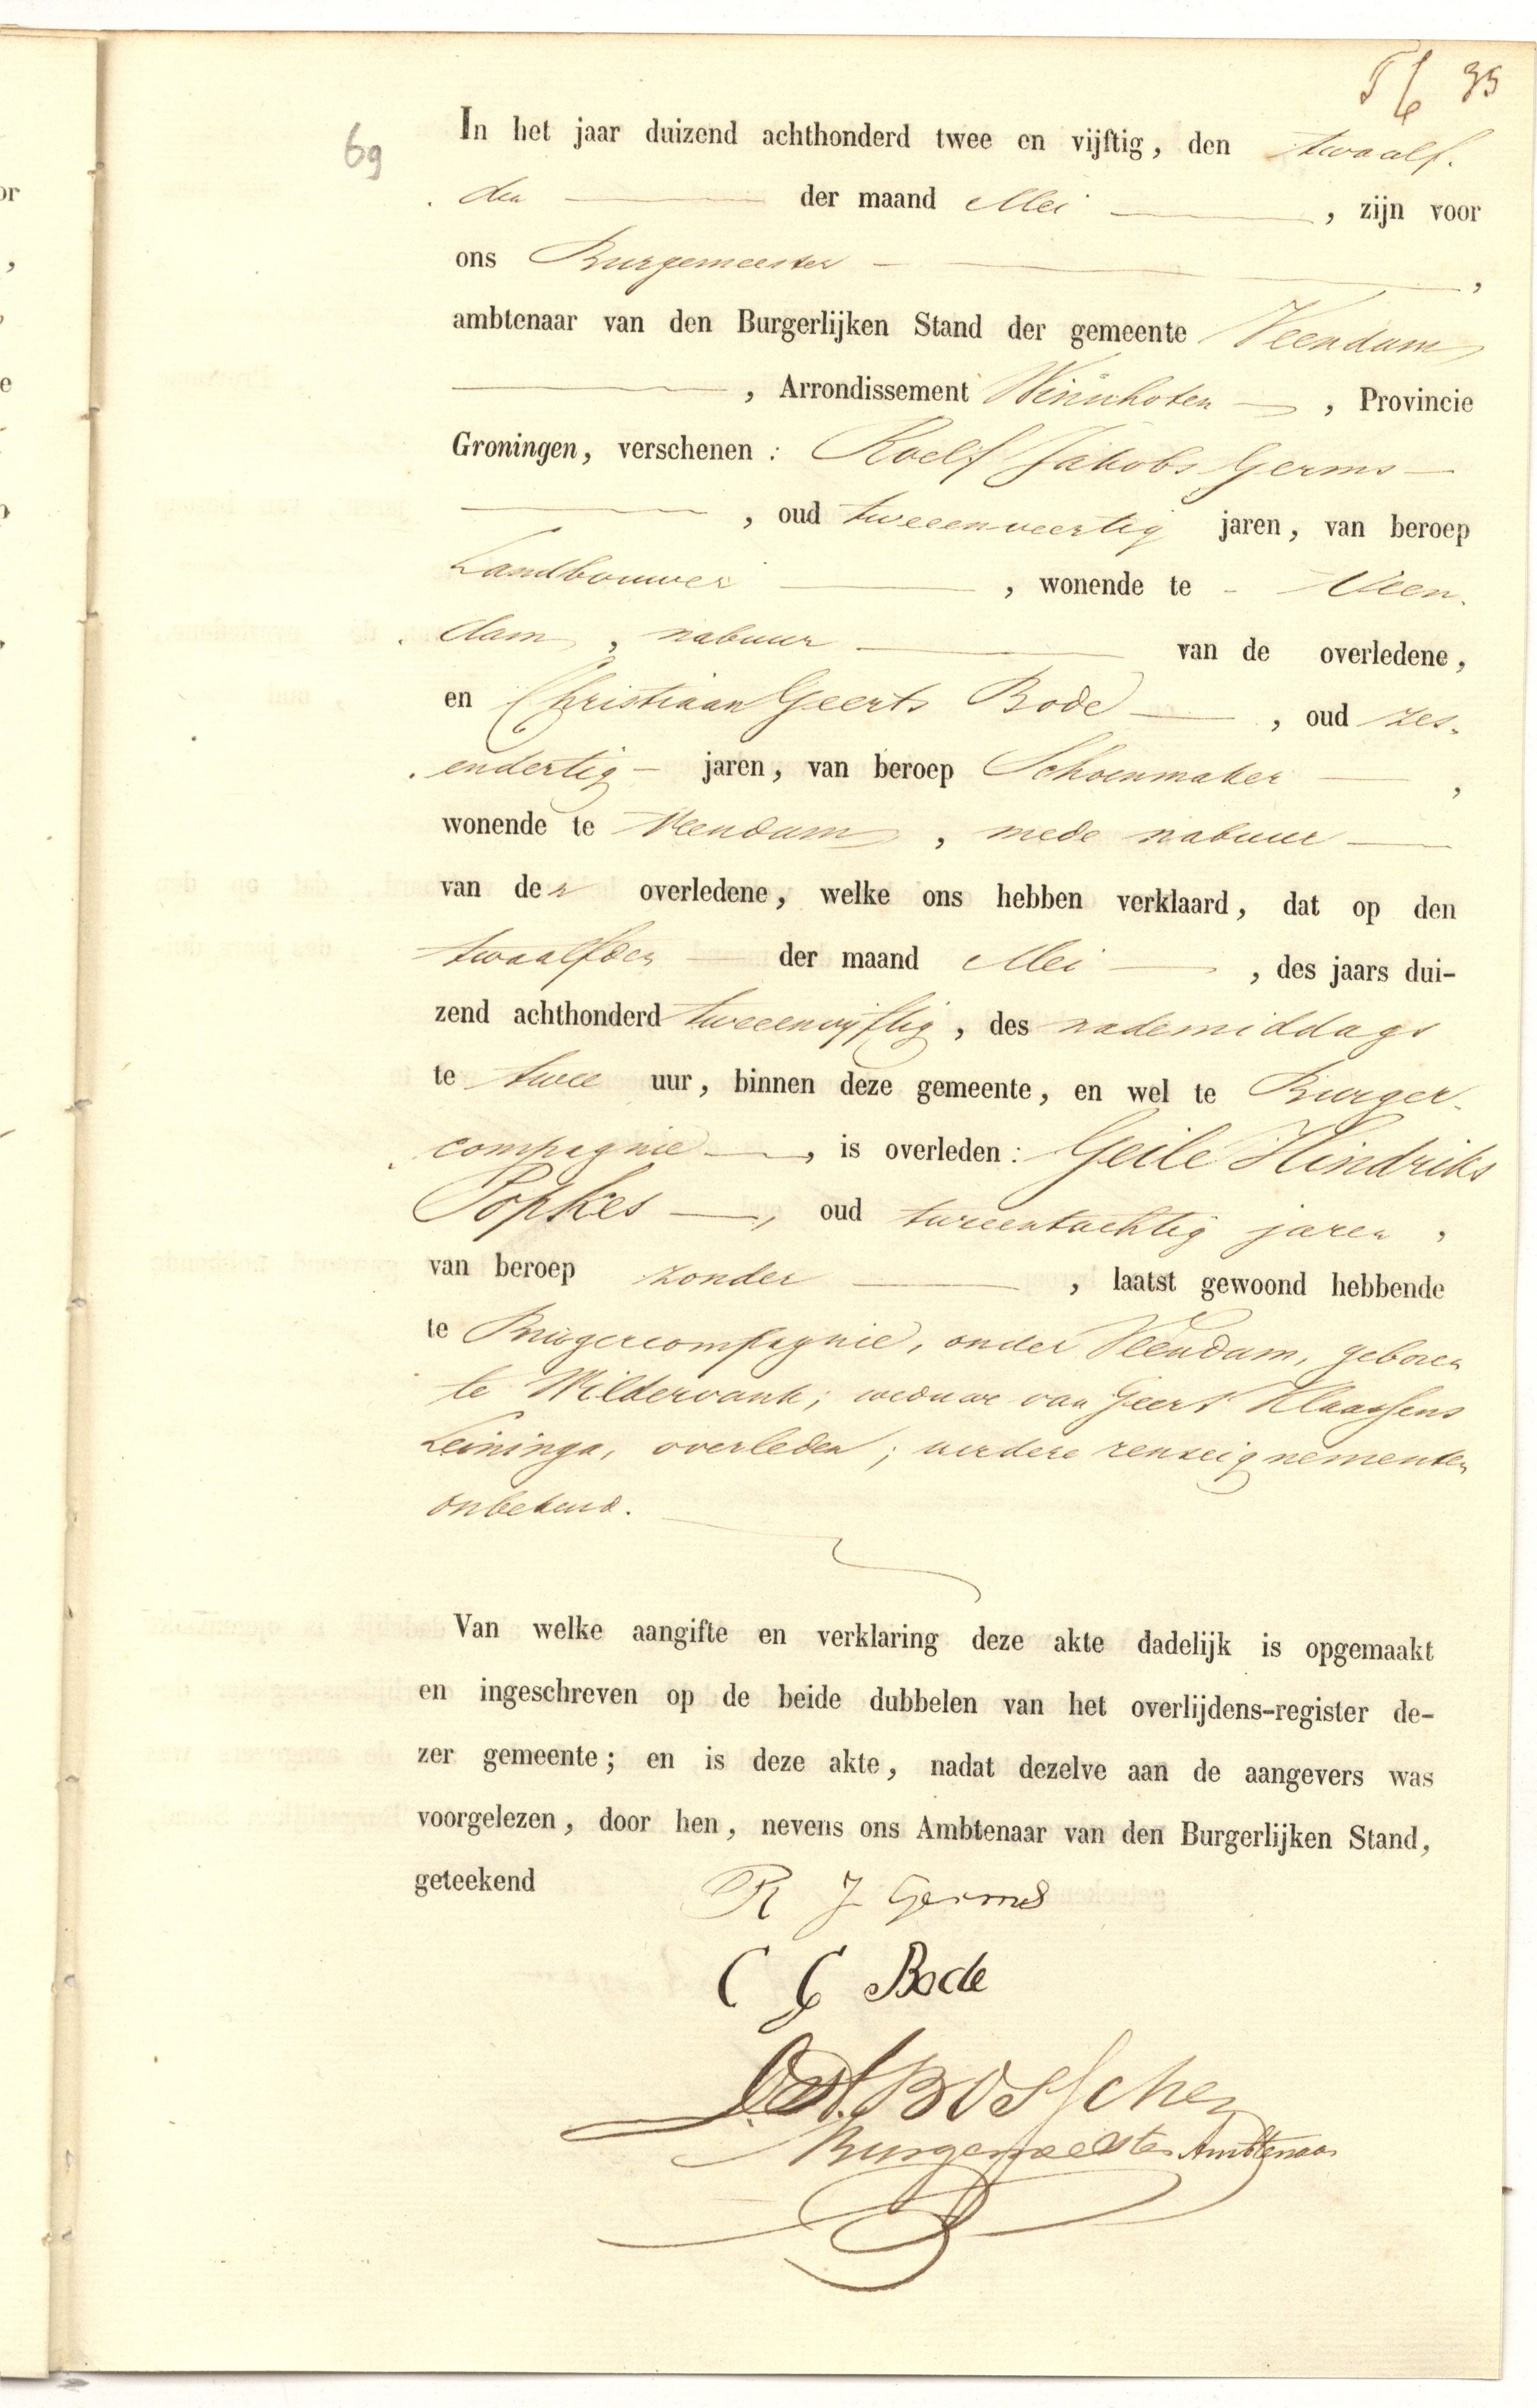 35
69
In het jaar duizend achthonderd twee en vijftig, den twaalf-
den der maand Mei, zijn voor
ons Burgemeester,
ambtenaar van den Burgerlijken Stand der gemeente Veendam
, Arrondissement Winschoten, Provincie
Groningen, verschenen: Roelf Jakobs Germs
, oud tweeenveertig jaren, van beroep
Landbouwer, wonende te Veen-
dam, nabuur van de overledene,
en Christiaan Geerts Bode, oud zes-
endertig jaren, van beroep Schoenmaker,
wonende te Veendam, mede nabuur
van der overledene, welke ons hebben verklaard, dat op den
twaalfden der maand Mei, des jaars dui-
zend achthonderd tweeenvijftig, des nademiddags
te twee uur, binnen deze gemeente, en wel te Burger-
compagnie, is overleden: Geile Hindriks
Popkes, oud tweeentachtig jaren,
van beroep zonder, laatst gewoond hebbende
te Burgercompagnie, onder Veendam, geboren
te Wildervank; weduwe van Geert Klaassens
Leininga, overleden; verdere renseignementen
onbekend.
Van welke aangifte en verklaring deze akte dadelijk is opgemaakt
en ingeschreven op de beide dubbelen van het overlijdens-register de-
zer gemeente; en is deze akte, nadat dezelve aan de aangevers was
voorgelezen, door hen, nevens ons Ambtenaar van den Burgerlijken Stand,
geteekend R J Germs
C G Bode
Bosscher
Burgemeester Ambtenaar